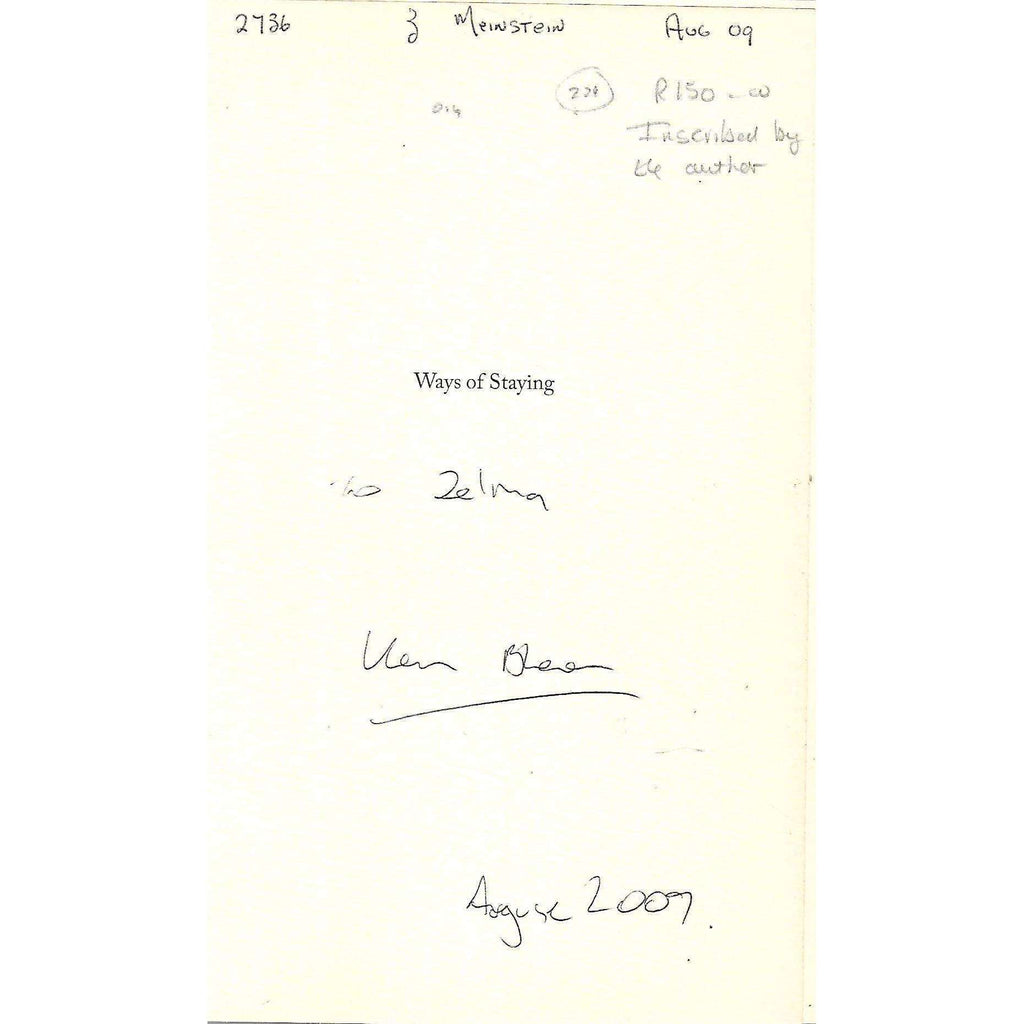 2736 Z Meinstein Aug 09
R150-00
Inscribed by
the author
Ways of Staying
to Zelma
Kevin Bloom
August 2009.